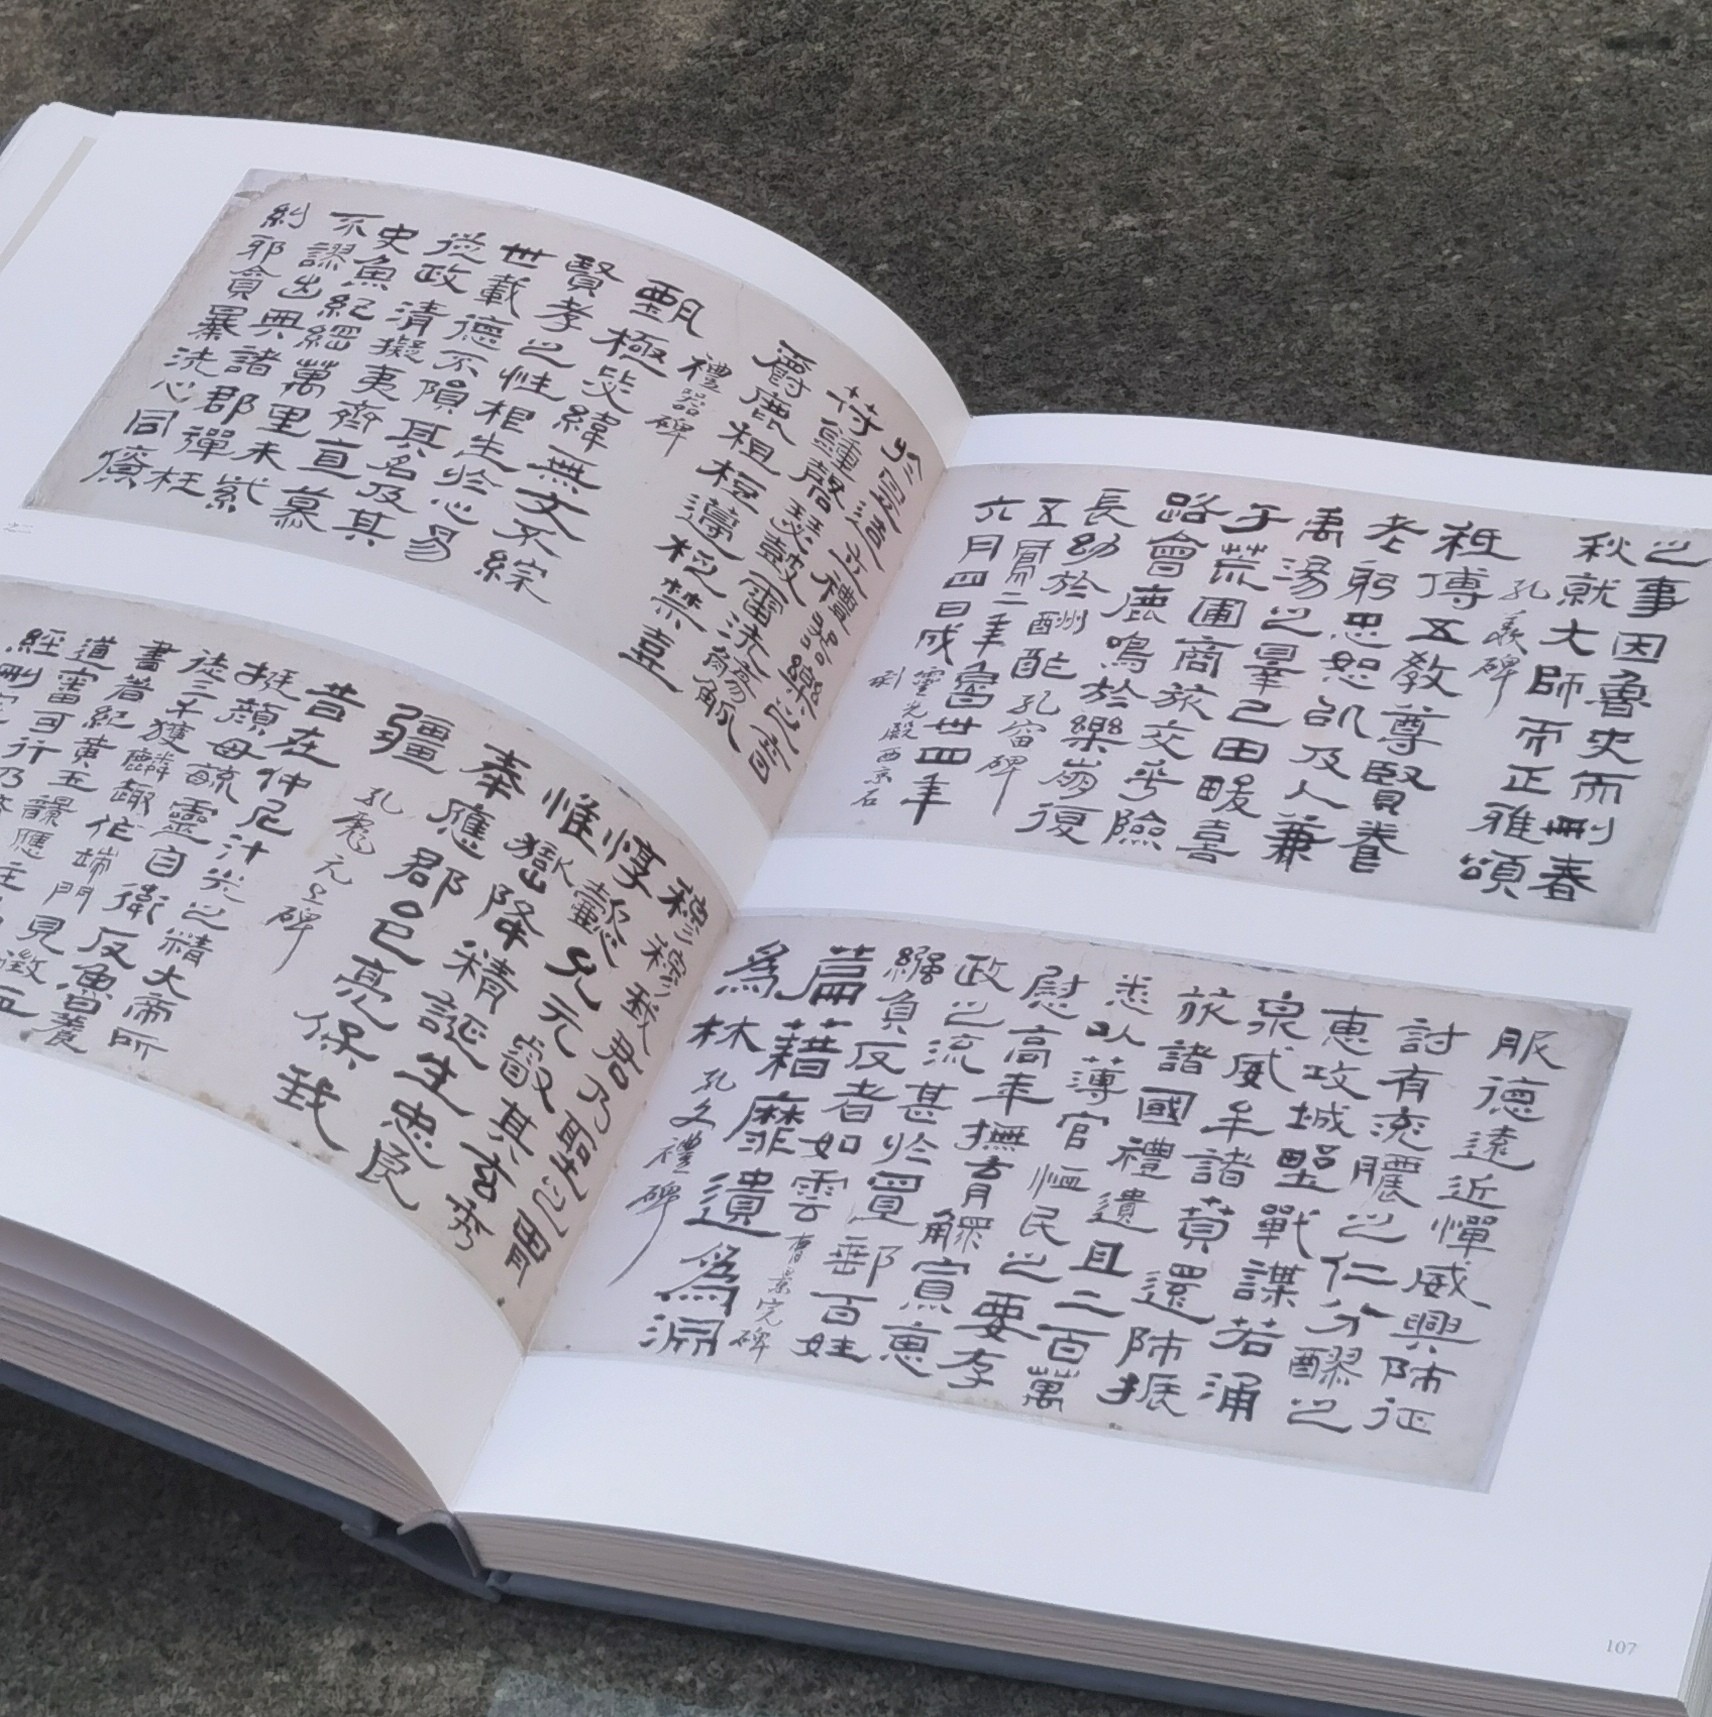 於空造立禮器樂之音
符鍾磬瑟鼓雷洗觴觚
爵鹿柤梪籩柉禁壺
禮器碑
甄極毖緯無文不綜
賢孝之性根生於心
世載德不隕其名及其
從政清擬夷齊直慕
史魚紀綱萬里朱紫
不謬出典諸郡彈枉
糾邪貪暴洗心同僚
之二
穆穆我君乃聖之冑
惇懿允元叡其玄秀
惟嶽降精誕生忠良
奉應郡邑亮保我
疆
孔彪元上碑
昔在仲尼汁光之精大帝所
挺顏母毓靈
徒三千獲麟趣作端門見徵
書著紀黃玉韻應主
道審可行乃
經刪定
之事因魯史而刪春
秋就大師而正雅頌
孔羨碑
祗傅五教尊賢養
老躬忠恕以及人兼
禹湯之罪己田畯喜
于荒圃商旅交乎險
路會鹿鳴於樂崩復
長幼於酬酢 孔宙碑
五鳳二年魯卅四年
六月四日成 靈光殿西京石刻
服德遠近憚威興師征
討有兗膿之仁分醪之
惠攻城野戰謀若涌
泉威牟諸賁還師振
旅諸國禮遺且二百萬
悉以薄官恤民之要存
慰高年撫育鰥寡惠
政之流甚於置郵百姓
繦負反者如雲 曹景完碑
篇籍靡遺為淵
為林 孔文禮碑
107